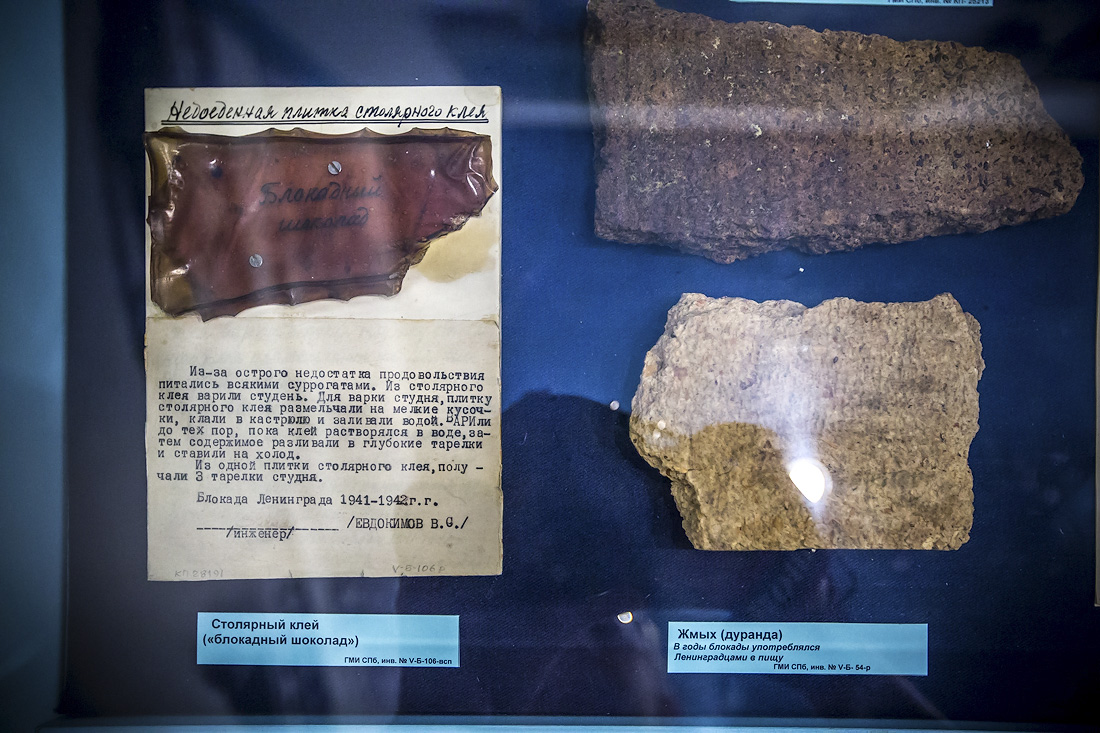 ГМИ СПб, инв. № КП- 25213
Недоеденная плитка столярного клея
Блокадный
шоколад
Из-за острого недостатка продовольствия
питались всякими суррогатами. Из столярного
клея варили студень. Для варки студня,плитку
столярного клея размельчали на мелкие кусоч-
ки, клали в кастрюлю и заливали водой.ВАРИли
до тех пор, пока клей растворялся в воде,за-
тем содержимое разливали в глубокие тарелки
и ставили на холод.
Из одной плитки столярного клея,полу -
чали 3 тарелки студня.
Блокада Ленинграда 1941-1942г.г.
/ЕВДОКИМОВ В.С./
/инженер/
КП 28191
V-Б-106 р
Столярный клей
(«блокадный шоколад»)
ГМИ СПб, инв. № V-Б-106-всп
Жмых (дуранда)
В годы блокады употреблялся
Ленинградцами в пищу
ГМИ СПб, инв. № V-Б- 54-р